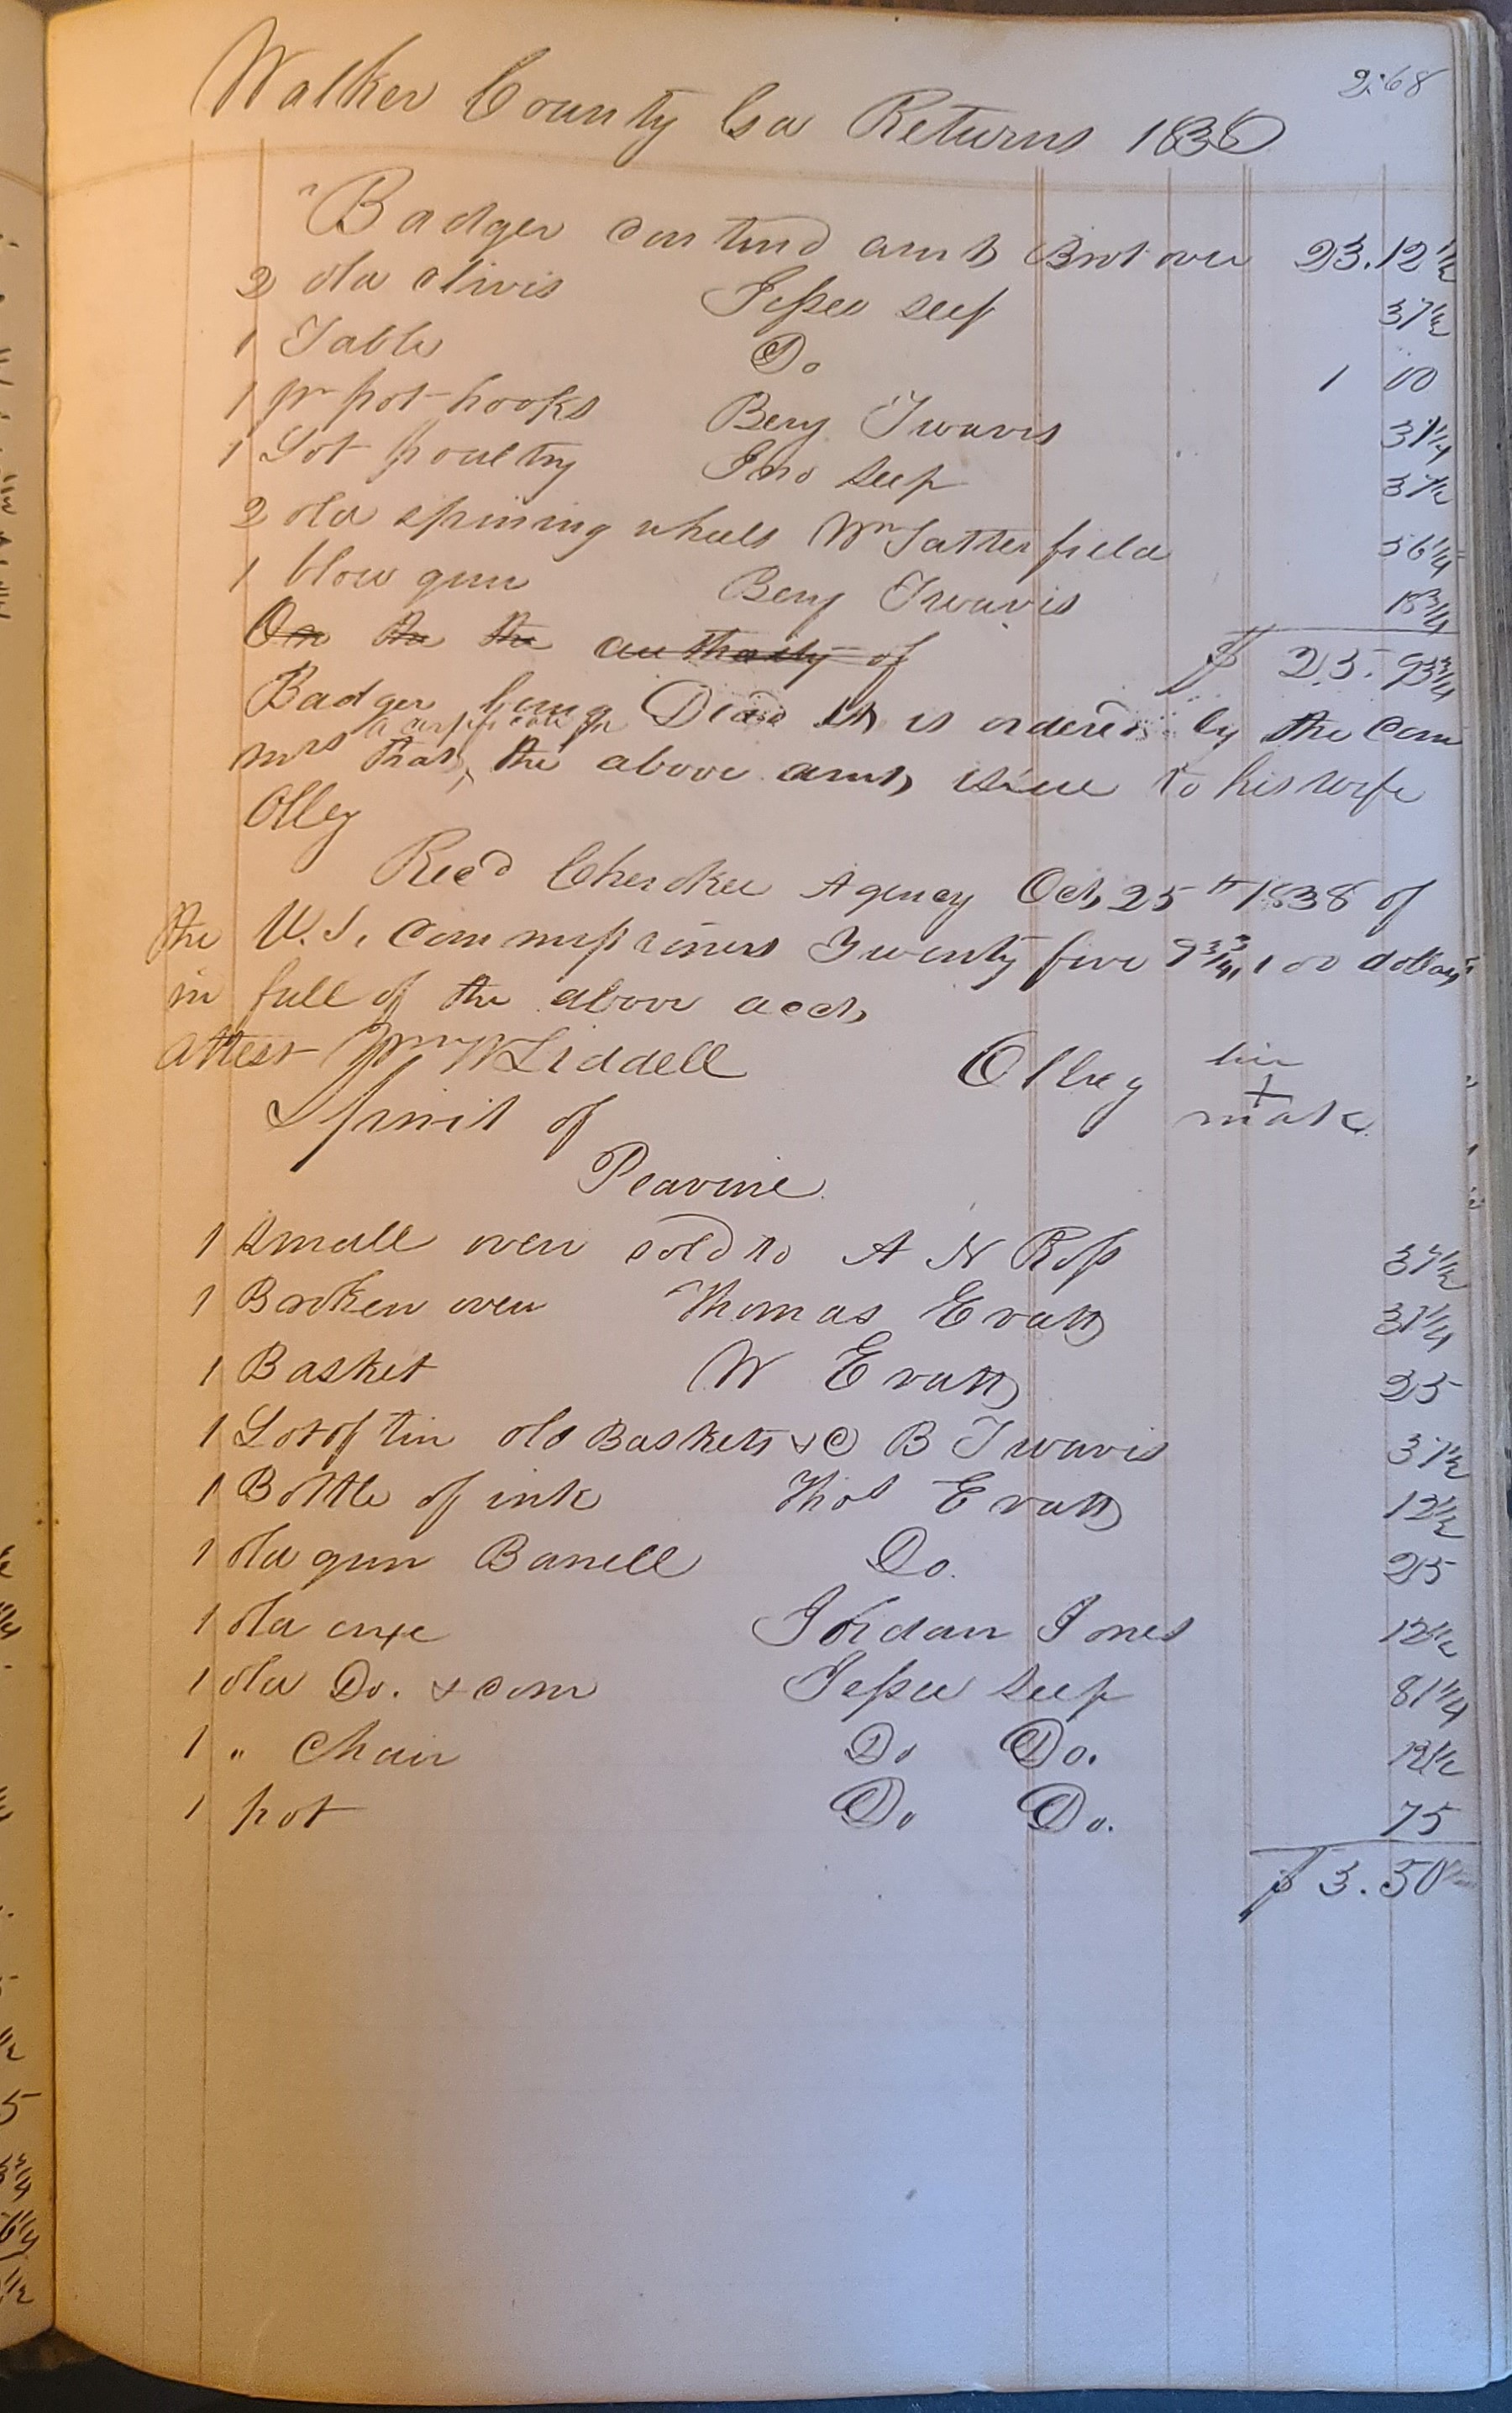 268
Walker County Ga Returns 1838
"Badger contind amt Brot over 23.12 1/2
2 old clivis Jesse Seep 37 1/2
1 Table Do 1 00
1 pr pot hooks Benj Twavis 31 1/4
1 Lot poultry Jno Seep 37 1/2
2 old spining wheels Wm Satterfield 56 1/4
1 blow gun Benj Twavis 18 3/4
On the the authority of $ 25.93 3/4
Badger being Dead it is ordered by the Com
a certificate for
mrs that the above amt issue to his wife
Olley
Recd Cherokee Agency Oct 25th 1838 of
the U.S. Commissioners Twenty five 93 3/4 100 dollars
in full of the above acct,
Attest Wm W Liddell Olley her
x
mark
Spirit of
Peavine
1 small oven sold to A N Ross 37 1/2
1 Broken oven Thomas Evatt 31 1/4
1 Basket W Evatt 25
1 Lot of tin old Baskets &C B Twavis 37 1/2
1 Bottle of ink Thos Evatt 12 1/2
1 old gun Barrell Do. 25
1 old axe Jordan Jones 12 1/2
1 old Do. & corn Jesse Seep 81 1/4
1 " Chair Do Do. 12 1/2
1 pot Do Do. 75
$ 3.50